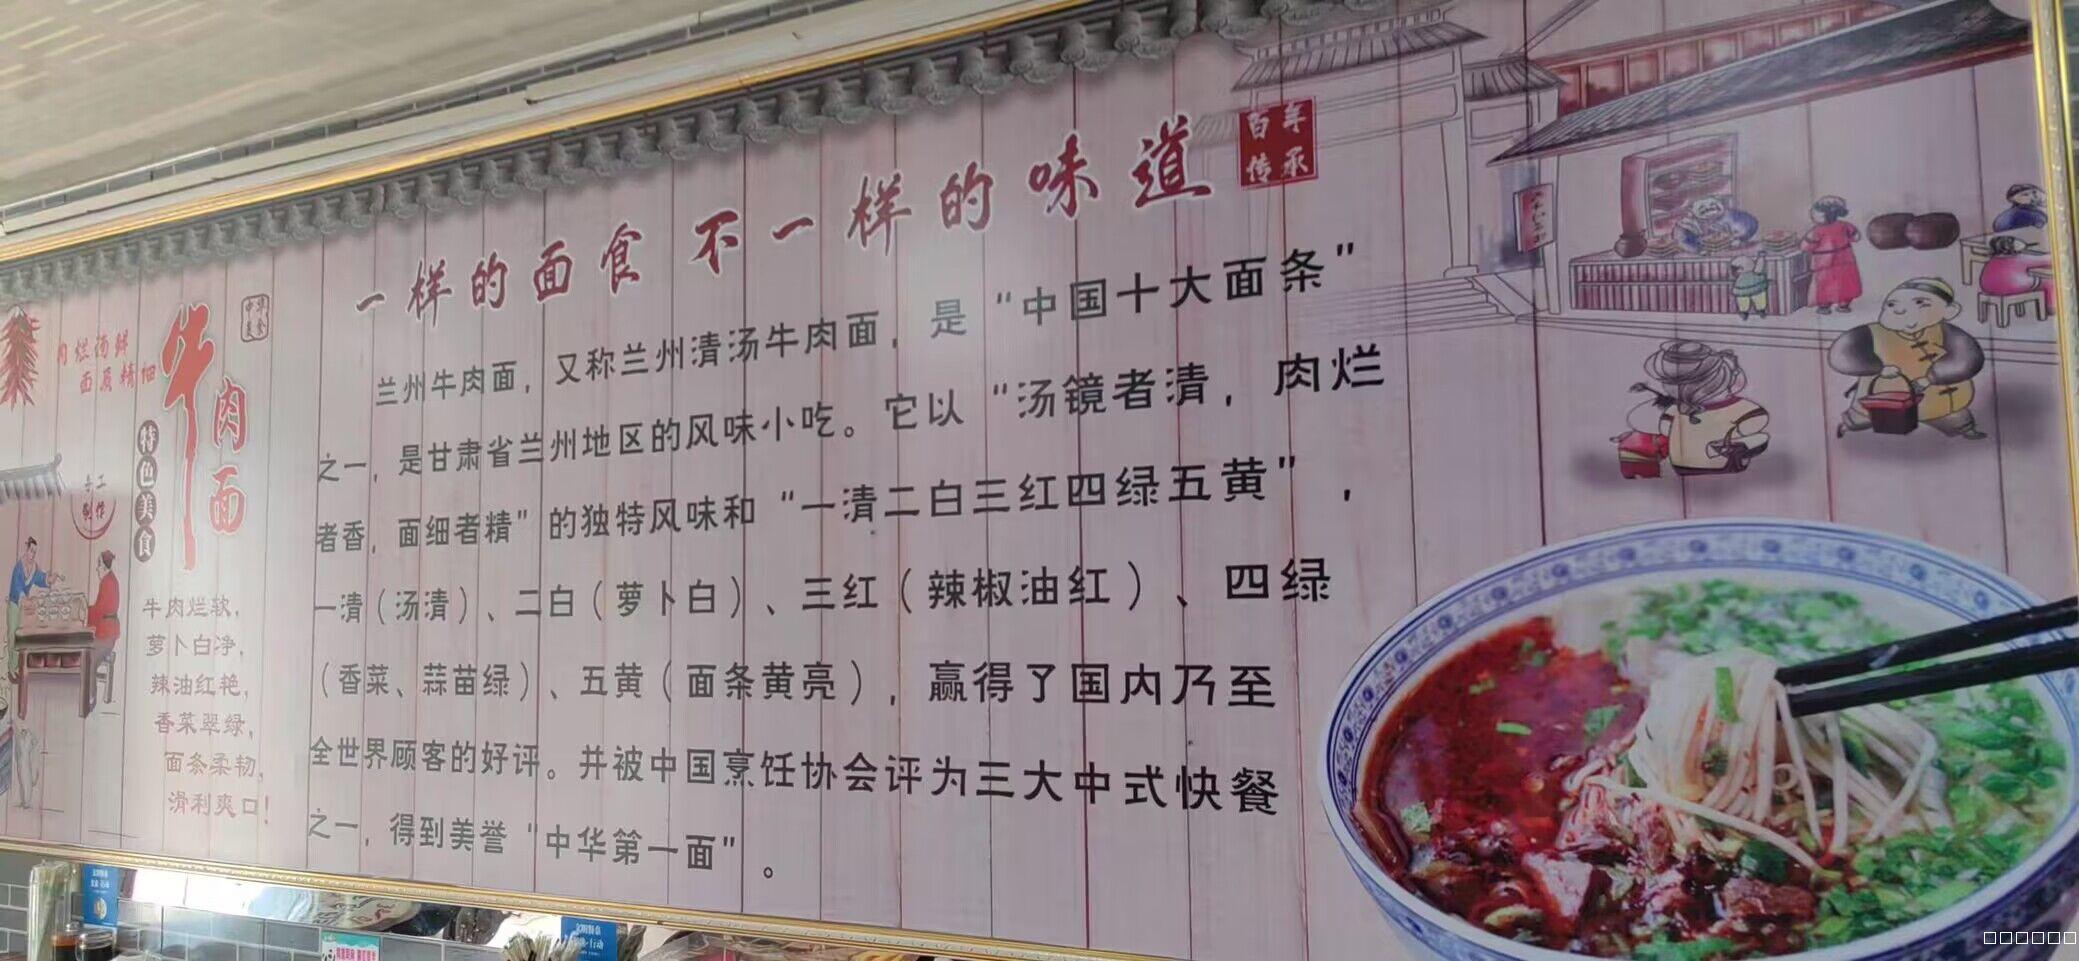 一样的面食 不一样的味道
百年
传承
兰州牛肉面，又称兰州清汤牛肉面，是“中国十大面条”
之一，是甘肃省兰州地区的风味小吃。它以“汤镜者清，肉烂
者香，面细者精”的独特风味和“一清二白三红四绿五黄”，
一清（汤清）、二白（萝卜白）、三红（辣椒油红）、四绿
（香菜、蒜苗绿）、五黄（面条黄亮），赢得了国内乃至
全世界顾客的好评。并被中国烹饪协会评为三大中式快餐
之一，得到美誉“中华第一面”。
中华
美食
肉烂汤鲜
面质精细
牛肉面
特色美食
手工
制作
牛肉烂软，
萝卜白净，
辣油红艳，
香菜翠绿，
面条柔韧，
滑利爽口！